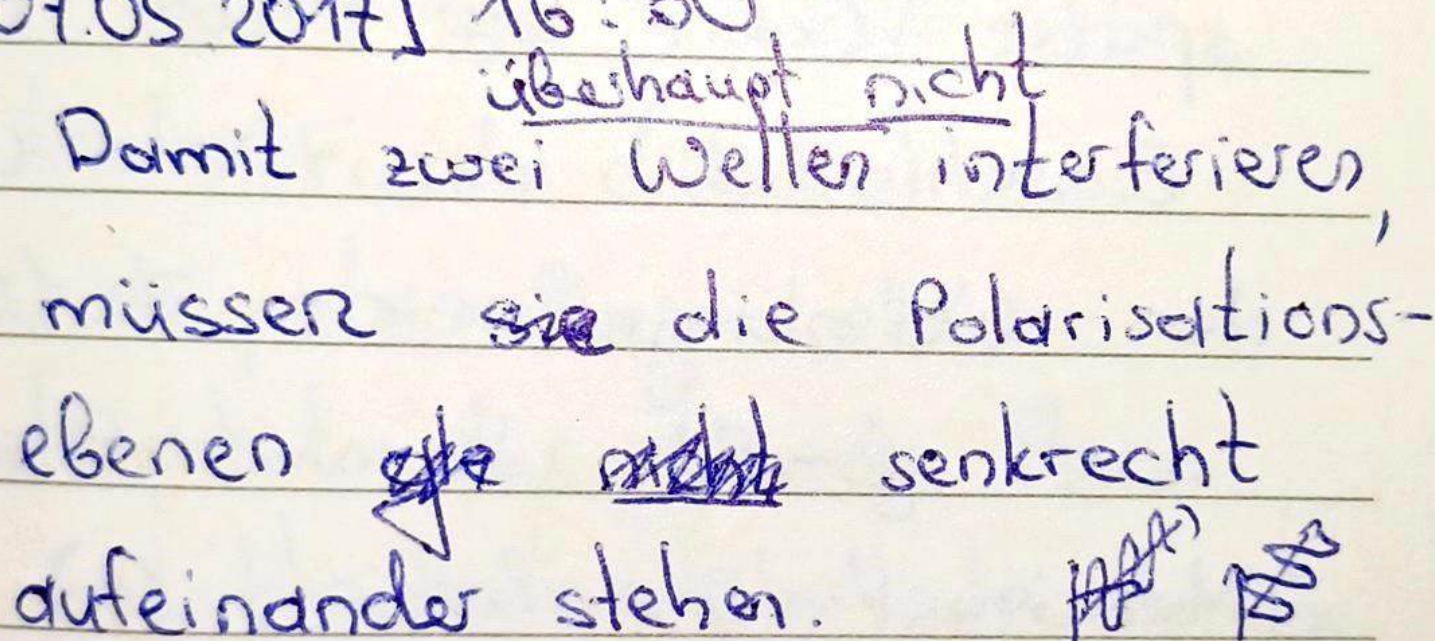 .05.2017] 16:
überhaupt nicht
Damit zwei Wellen interferieren,
müssen die Polarisations-
ebenen senkrecht
aufeinander stehen.